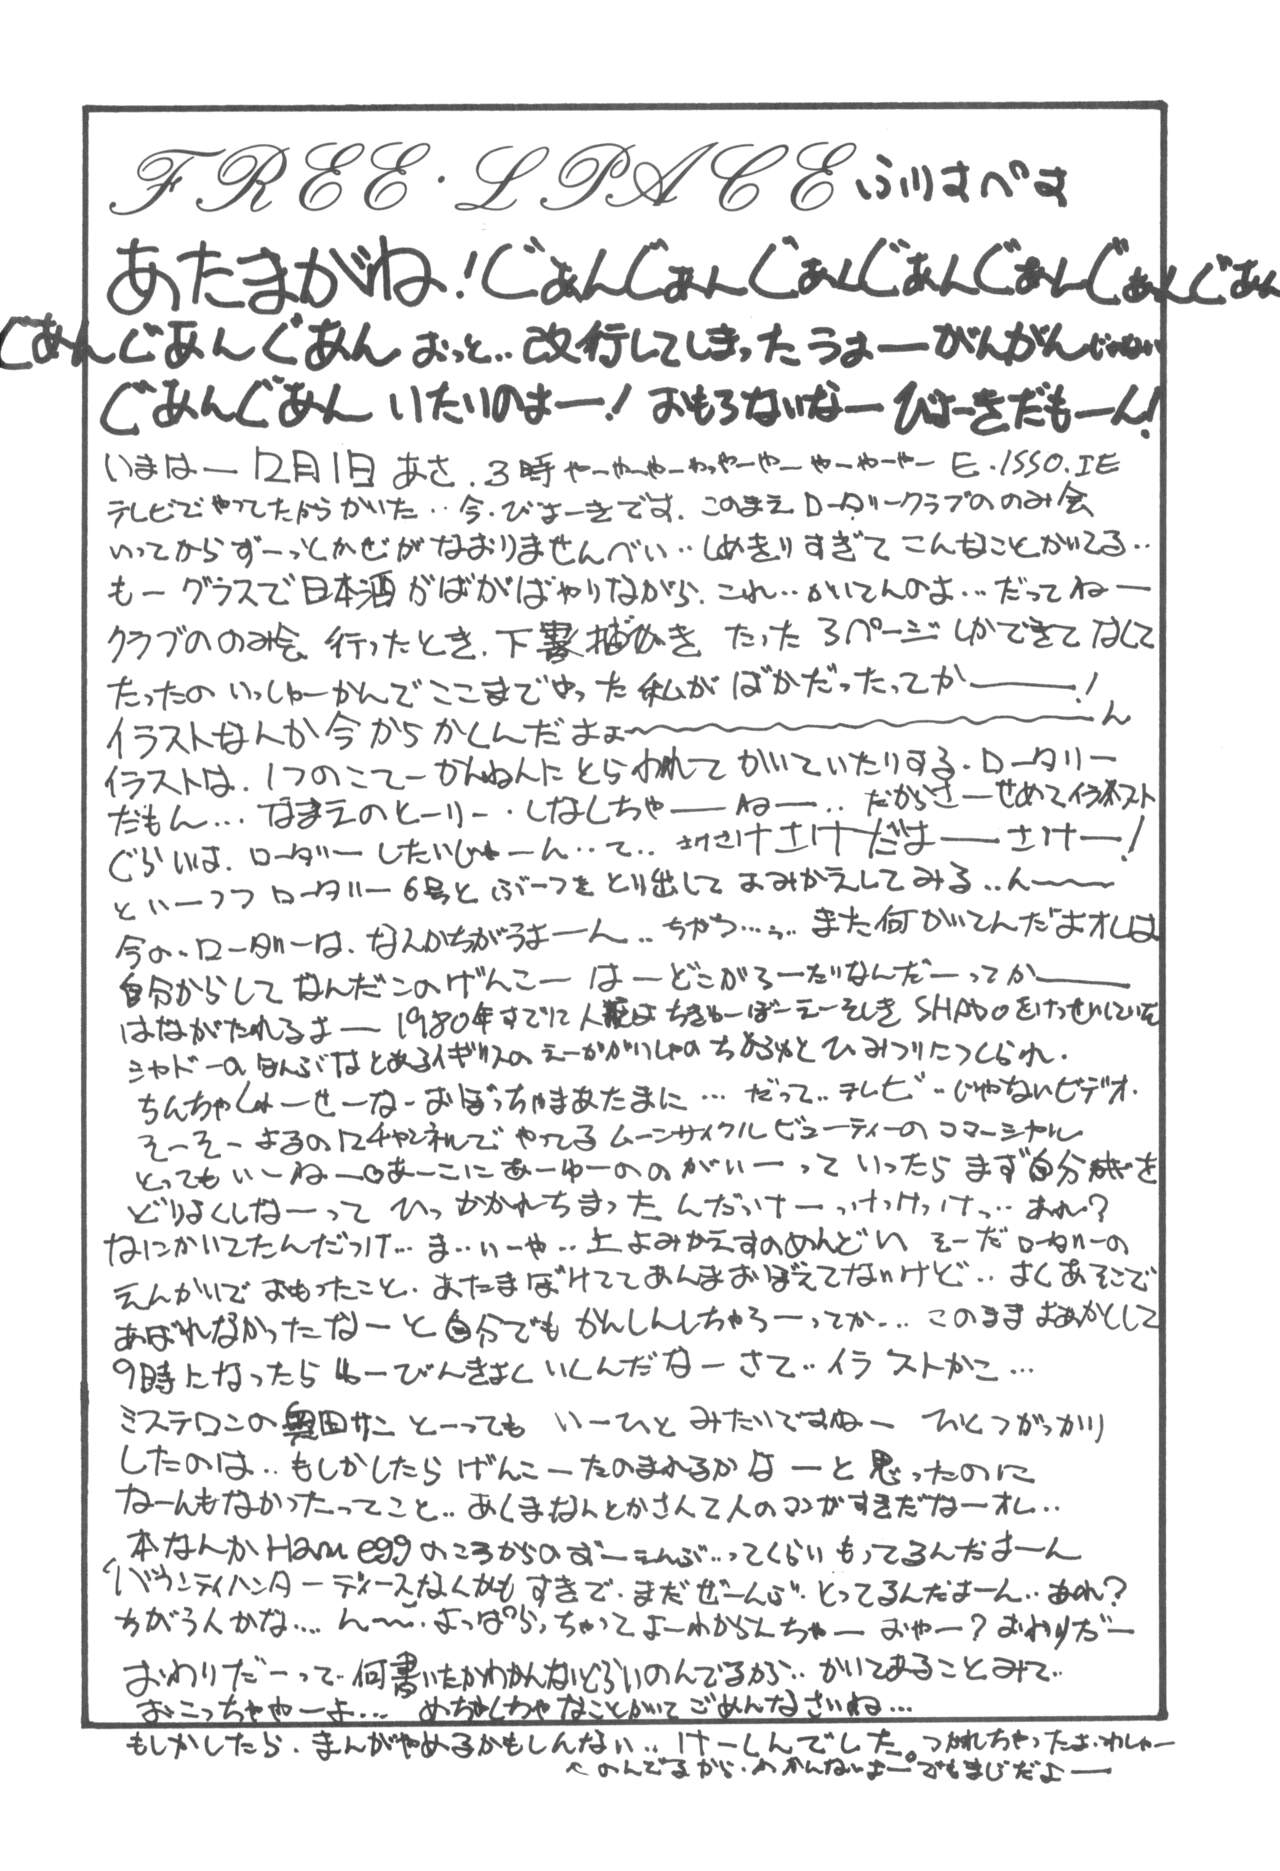 FREE・LPACE ふりすぺす
あたまがね!ぐあんぐあんぐあんぐあんぐあんぐあんぐあん
ぐあんぐあんぐあん おっと‥改行してしまったうぉーがんがんじゃない
ぐあんぐあん いたいのよー! おもろないなー びょーきだもーん!
いまはー 12月1日 あさ.3時 やーやーやーわっやーやー やーやーやー E.ISSO.IE
テレビでやってたからかいた‥今.びょーきです.このまえロータリークラブののみ会
いってからずーっとかぜがなおりませんべい‥しめきりすぎてこんなことかいてる‥
もーグラスで日本酒がばがばやりながら.これ‥かいてんのよ…だってねー
クラブののみ会 行ったとき.下書 描がき たった3ページしかできてなして
たったの いっしゅーかんでここまでやった私がばかだったってかー!
イラストなんか今からかくんだよぉ〜ん
イラストは.1つのこてーかんねんにとらわれてかいていたりする.ロータリー
だもん…なまえのとーりー.しなしちゃーねー‥だからさーせめてイラスト
ぐらいは.ローダーしたいじゃーん‥て‥さけさけさけだよーさけー!
といーつつ ローダー 6号と ぶーつをとり出して よみかえしてみる‥ん〜
今の.ローダーは.なんかちがうよーん‥ちがう…ぅ‥また何かいてんだよオレは
自分からしてなんだこのげんこーは―どこがろーだりなんだーってかー
はながたれるよー 1980年すでに人類はちきゅーぼーえーそしき SHADOをけっせいしていた
シャドーのほんぶはとあるイギリスのえーがかいしゃのちかふかくひみつりにつくられ.
ちんちゃくしゅーせーなーおぼっちゃまあたまに…だって‥テレビ‥じゃないビデオ.
そーそーよるの12チャンネルでやってるムーンサイクルビューティーのコマーシャル
とってもいーねー♡あーこにあーゆーののがいーっていったらまず自分がを
どりょくしなーってひっかかれちまったんだっけーっけっけっけっ‥あれ?
なにかいてたんだっけ…ま‥いーや‥上よみかえすのめんどい そーだローダーの
えんかいでおもったこと.あたまぼけててあんまおぼえてないけど‥よくあそこで
あばれなかったなーと自分でもかんしんしちゃろーってか…このままよあかとして
9時になったらゆーびんきょくいくんだなーさて‥イラストかこ…
ミステロンの奥田サンとーってもいーひとみたいですねー ひとつがっかり
したのは‥もしかしたらげんこーたのまれるかなーと思ったのに
なーんもなかったってこと‥あくまなんとかさんて人のマンガすきだなーオレ‥
本なんかHam eggのころからのずーえんぶ‥ってくらいもってるんだよーん
バウンティハンターディースなんかもすきで.まだぜーんぶ.とってるんだよーん‥あれ?
ちがう人かな….ん〜.よっぱらっちゃってよーわからんちゃー おやー?おわりだー
おわりだーって.何書いたかわかんないぐらいのんでるから‥かいてあることみて‥
おこっちゃやーよ… めちゃくちゃなことかいてごめんなさいね…
もしかしたら.まんがやめるかもしんない‥けーしんでした。つかれちゃったよ.わしゃー
へのんでるから.わかんないよー。でもまじだよー